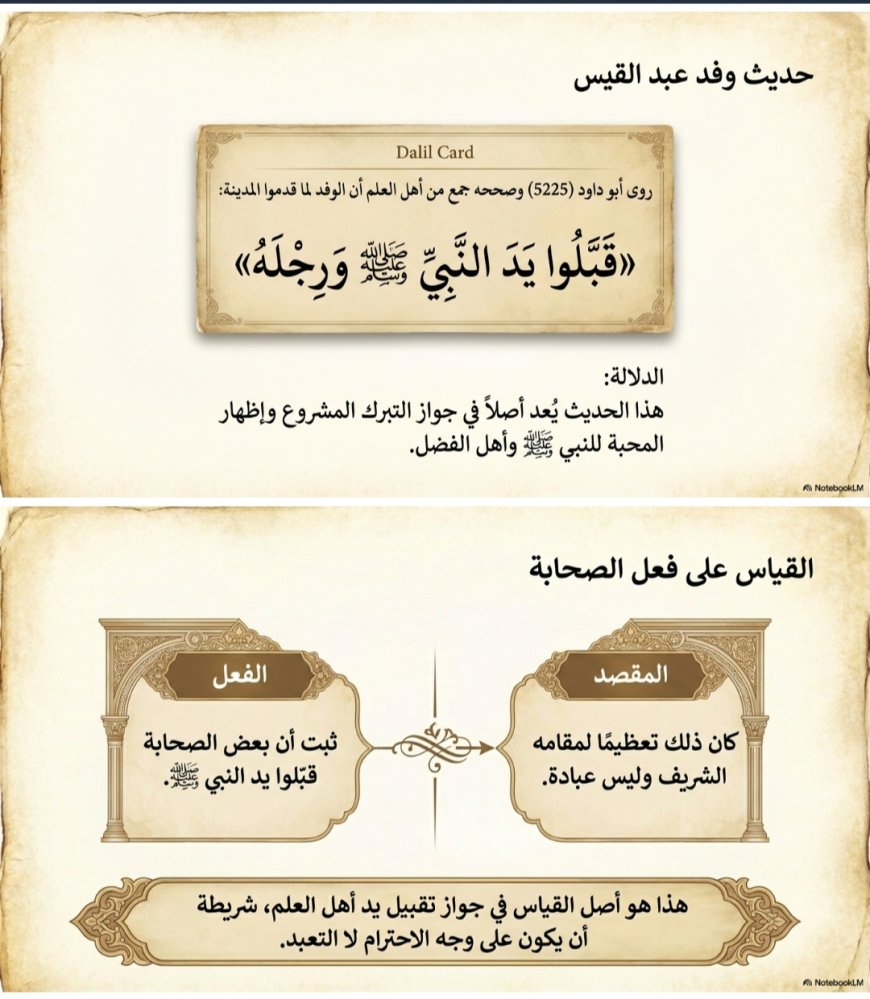 حديث وفد عبد القيس
Dalil Card
روى أبو داود (5225) وصححه جمع من أهل العلم أن الوفد لما قدموا المدينة:
«قَبَّلُوا يَدَ النَّبِيِّ ﷺ وَرِجْلَهُ»
الدلالة:
هذا الحديث يُعد أصلاً في جواز التبرك المشروع وإظهار
المحبة للنبي ﷺ وأهل الفضل.
NotebookLM
القياس على فعل الصحابة
المقصد
كان ذلك تعظيمًا لمقامه
الشريف وليس عبادة.
الفعل
ثبت أن بعض الصحابة
قبّلوا يد النبي ﷺ.
هذا هو أصل القياس في جواز تقبيل يد أهل العلم، شريطة
أن يكون على وجه الاحترام لا التعبد.
NotebookLM